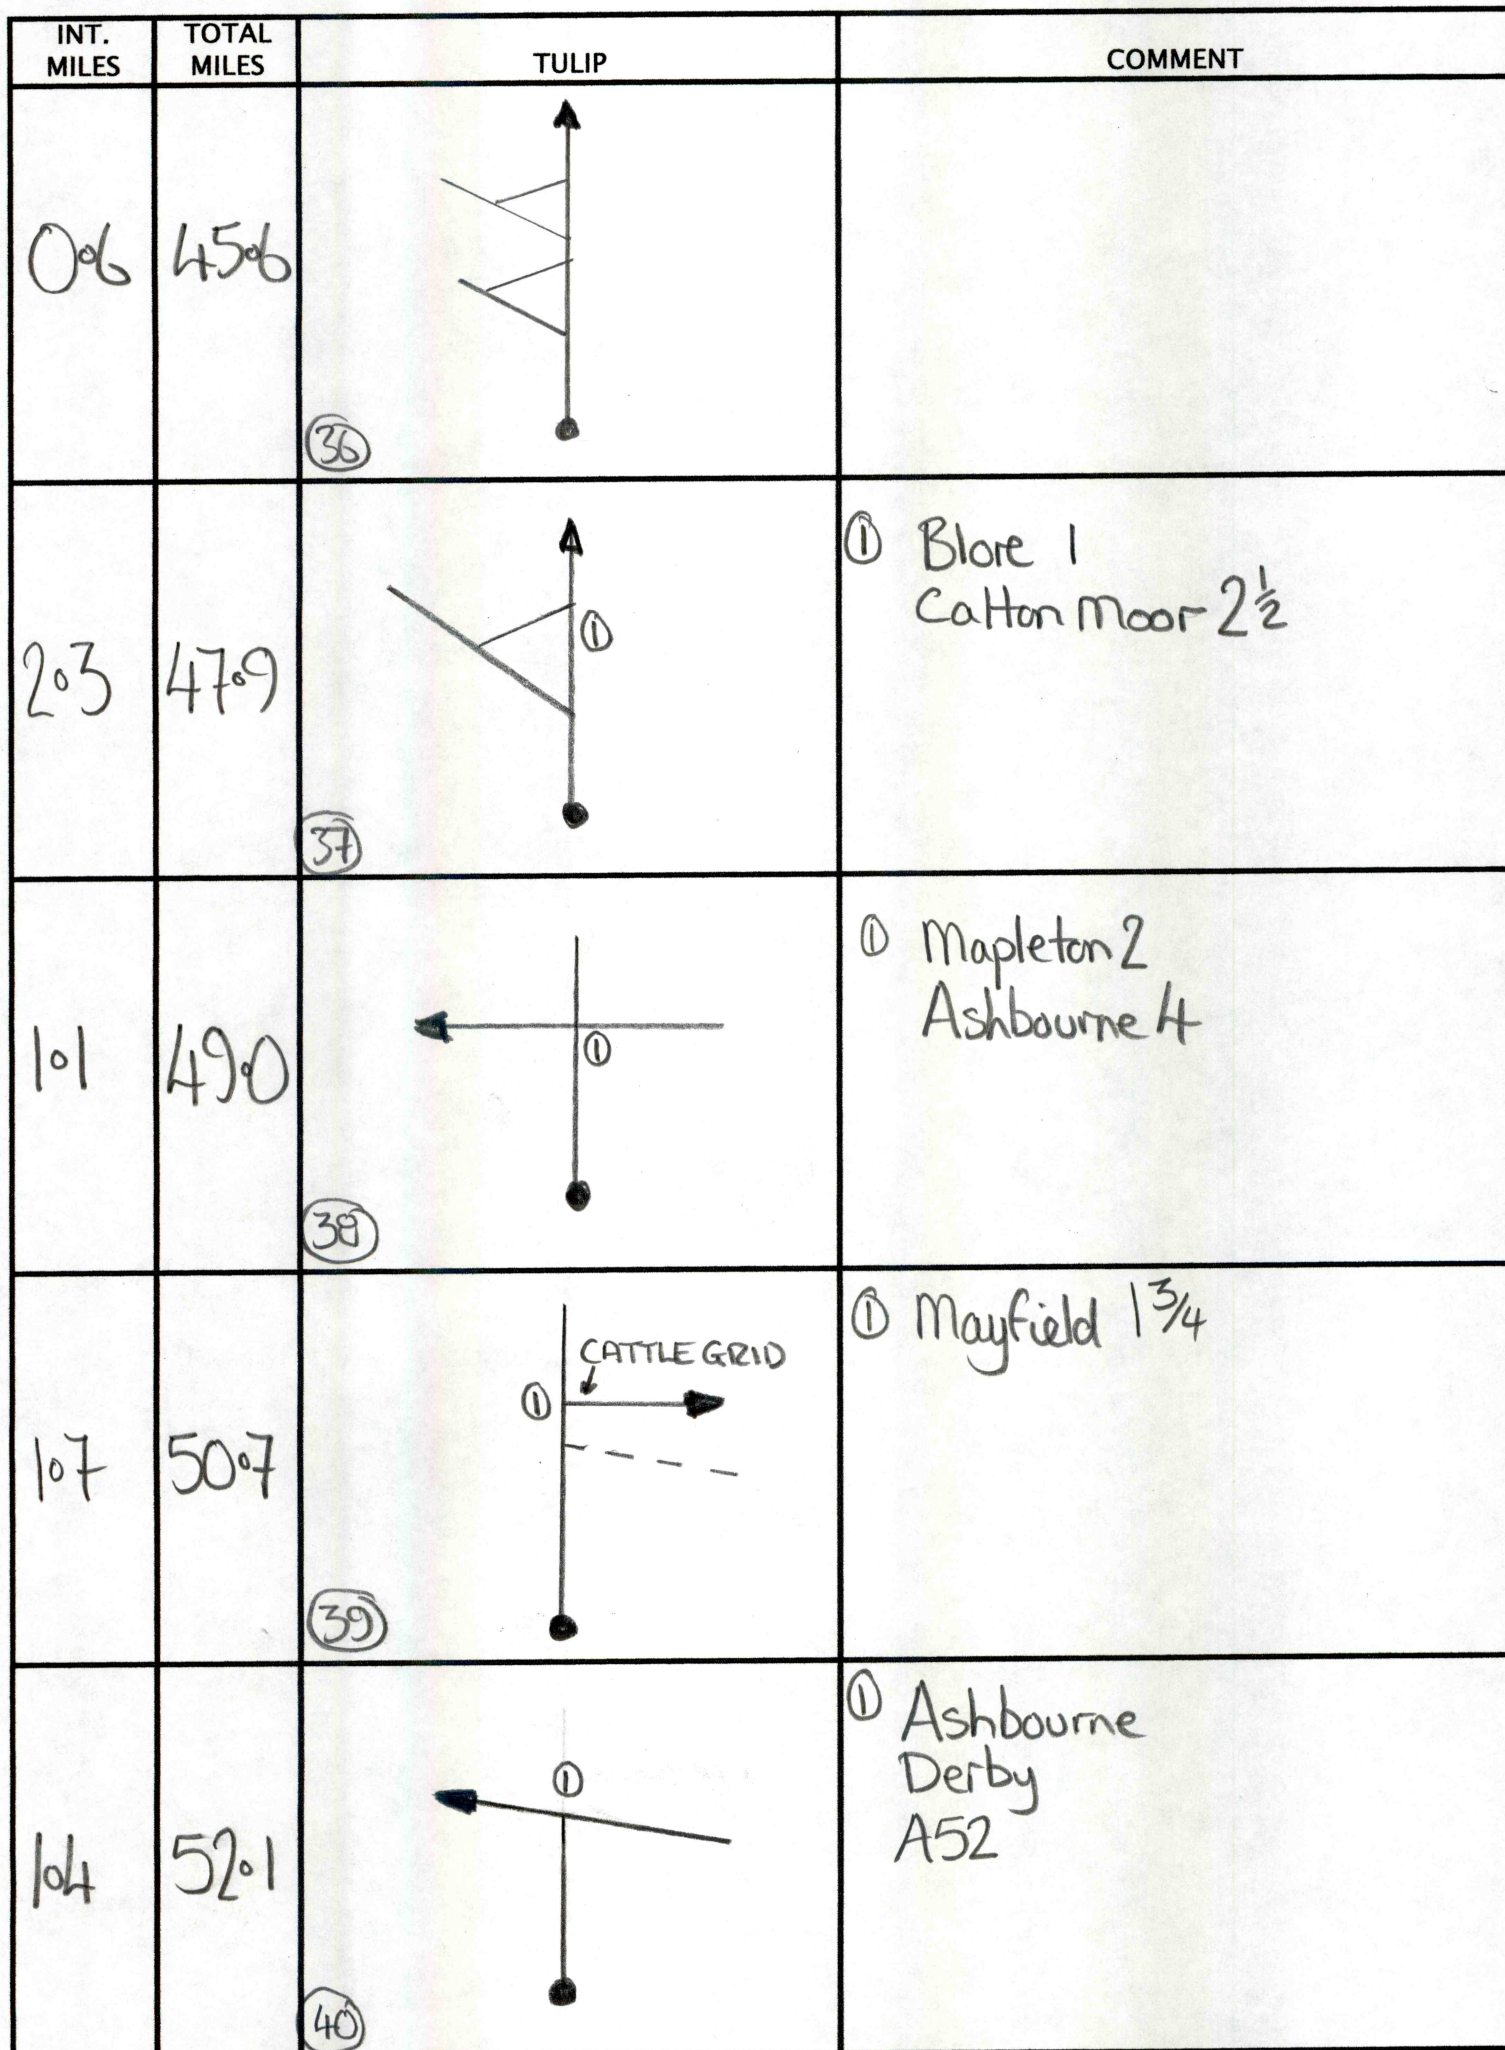 INT. MILES TOTAL MILES TULIP COMMENT
0.6 45.6
36
2.3 47.9
①
37
① Blore 1
Calton Moor 2½
1.1 49.0
①
38
① Mapleton 2
Ashbourne 4
1.7 50.7
CATTLE GRID
①
39
① Mayfield 1 3/4
1.4 52.1
①
40
① Ashbourne
Derby
A52